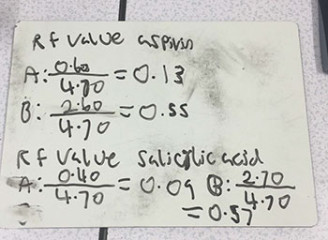 Rf value aspirin
A: 0.60/4.70 = 0.13
B: 2.60/4.70 = 0.55
Rf Value Salicylic acid
A: 0.40/4.70 = 0.09 B: 2.70/4.70
= 0.57